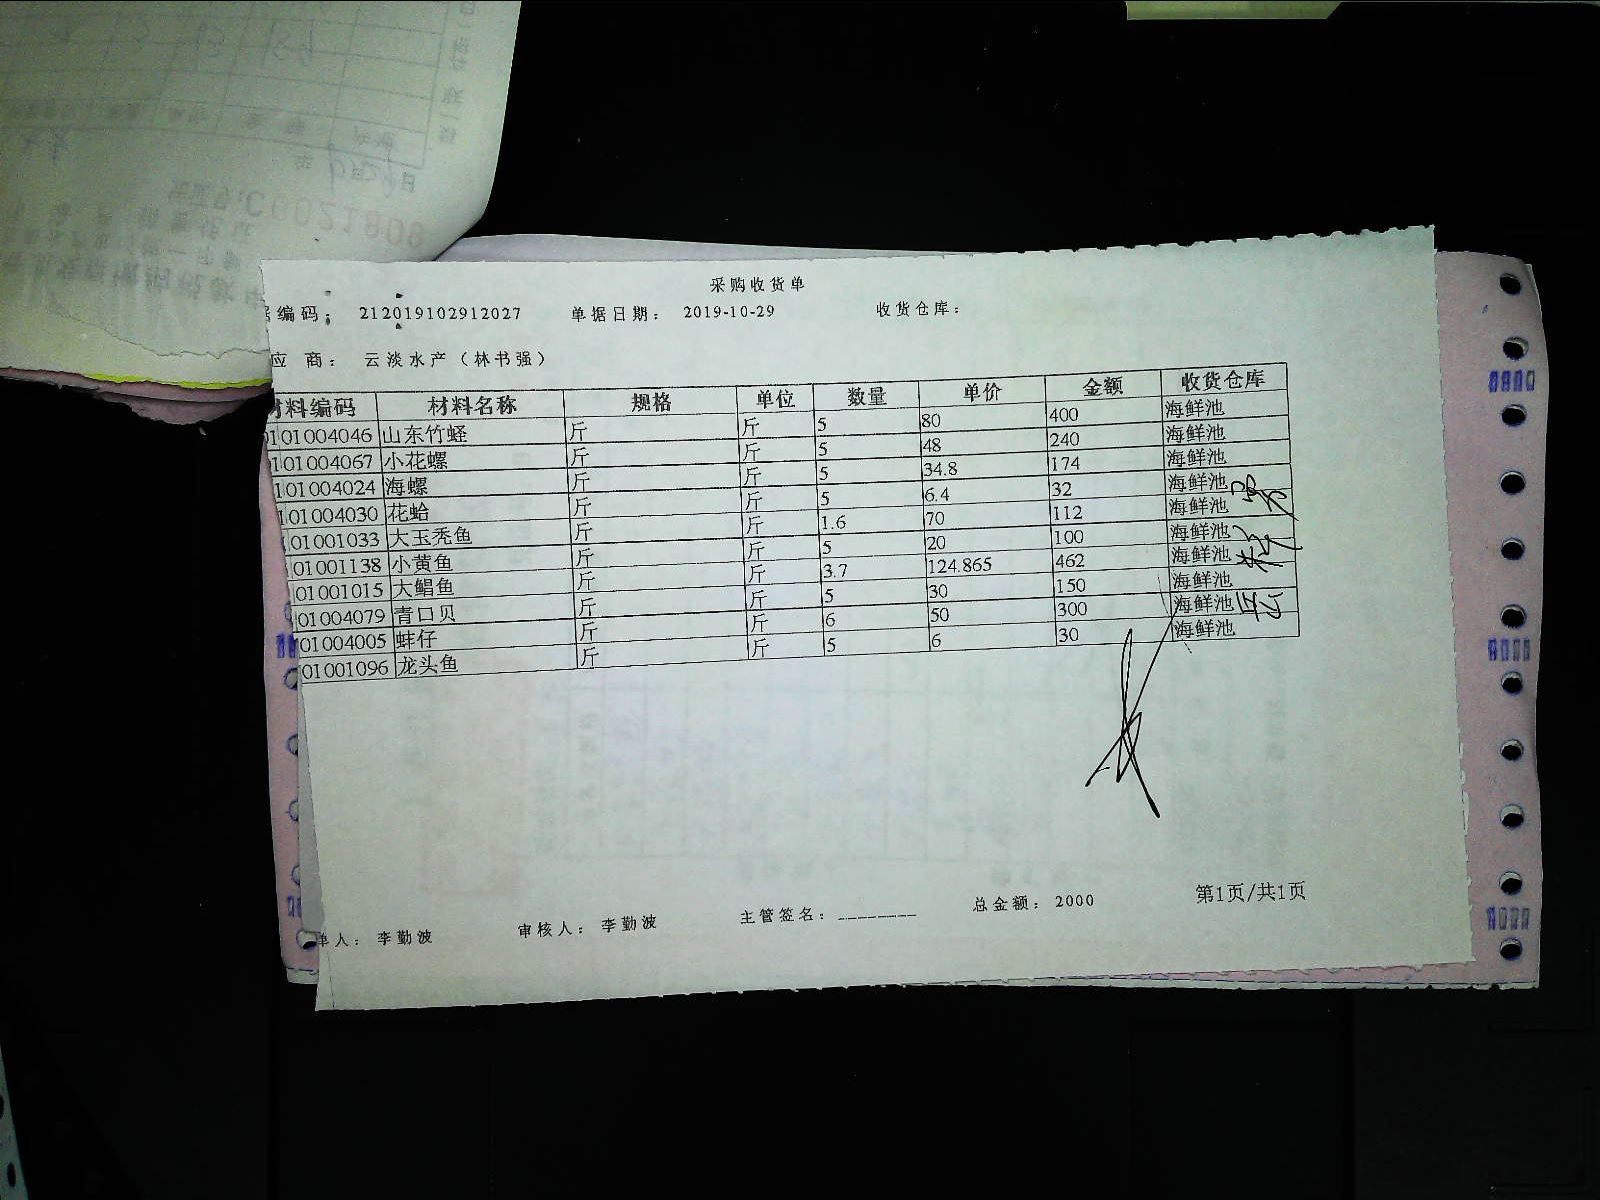 采购收货单
编码： 212019102912027 单据日期： 2019-10-29 收货仓库：
应 商： 云淡水产（林书强）
材料编码 材料名称 规格 单位 数量 单价 金额 收货仓库
0101004046 山东竹蛏 斤 斤 5 80 400 海鲜池
101004067 小花螺 斤 斤 5 48 240 海鲜池
101004024 海螺 斤 斤 5 34.8 174 海鲜池
101004030 花蛤 斤 斤 5 6.4 32 海鲜池
01001033 大玉秃鱼 斤 斤 1.6 70 112 海鲜池
01001138 小黄鱼 斤 斤 5 20 100 海鲜池
01001015 大鲳鱼 斤 斤 3.7 124.865 462 海鲜池
01004079 青口贝 斤 斤 5 30 150 海鲜池
01004005 蚌仔 斤 斤 6 50 300 海鲜池
01001096 龙头鱼 斤 斤 5 6 30 海鲜池
单人： 李勤波 审核人： 李勤波 主管签名：________ 总金额： 2000 第1页/共1页